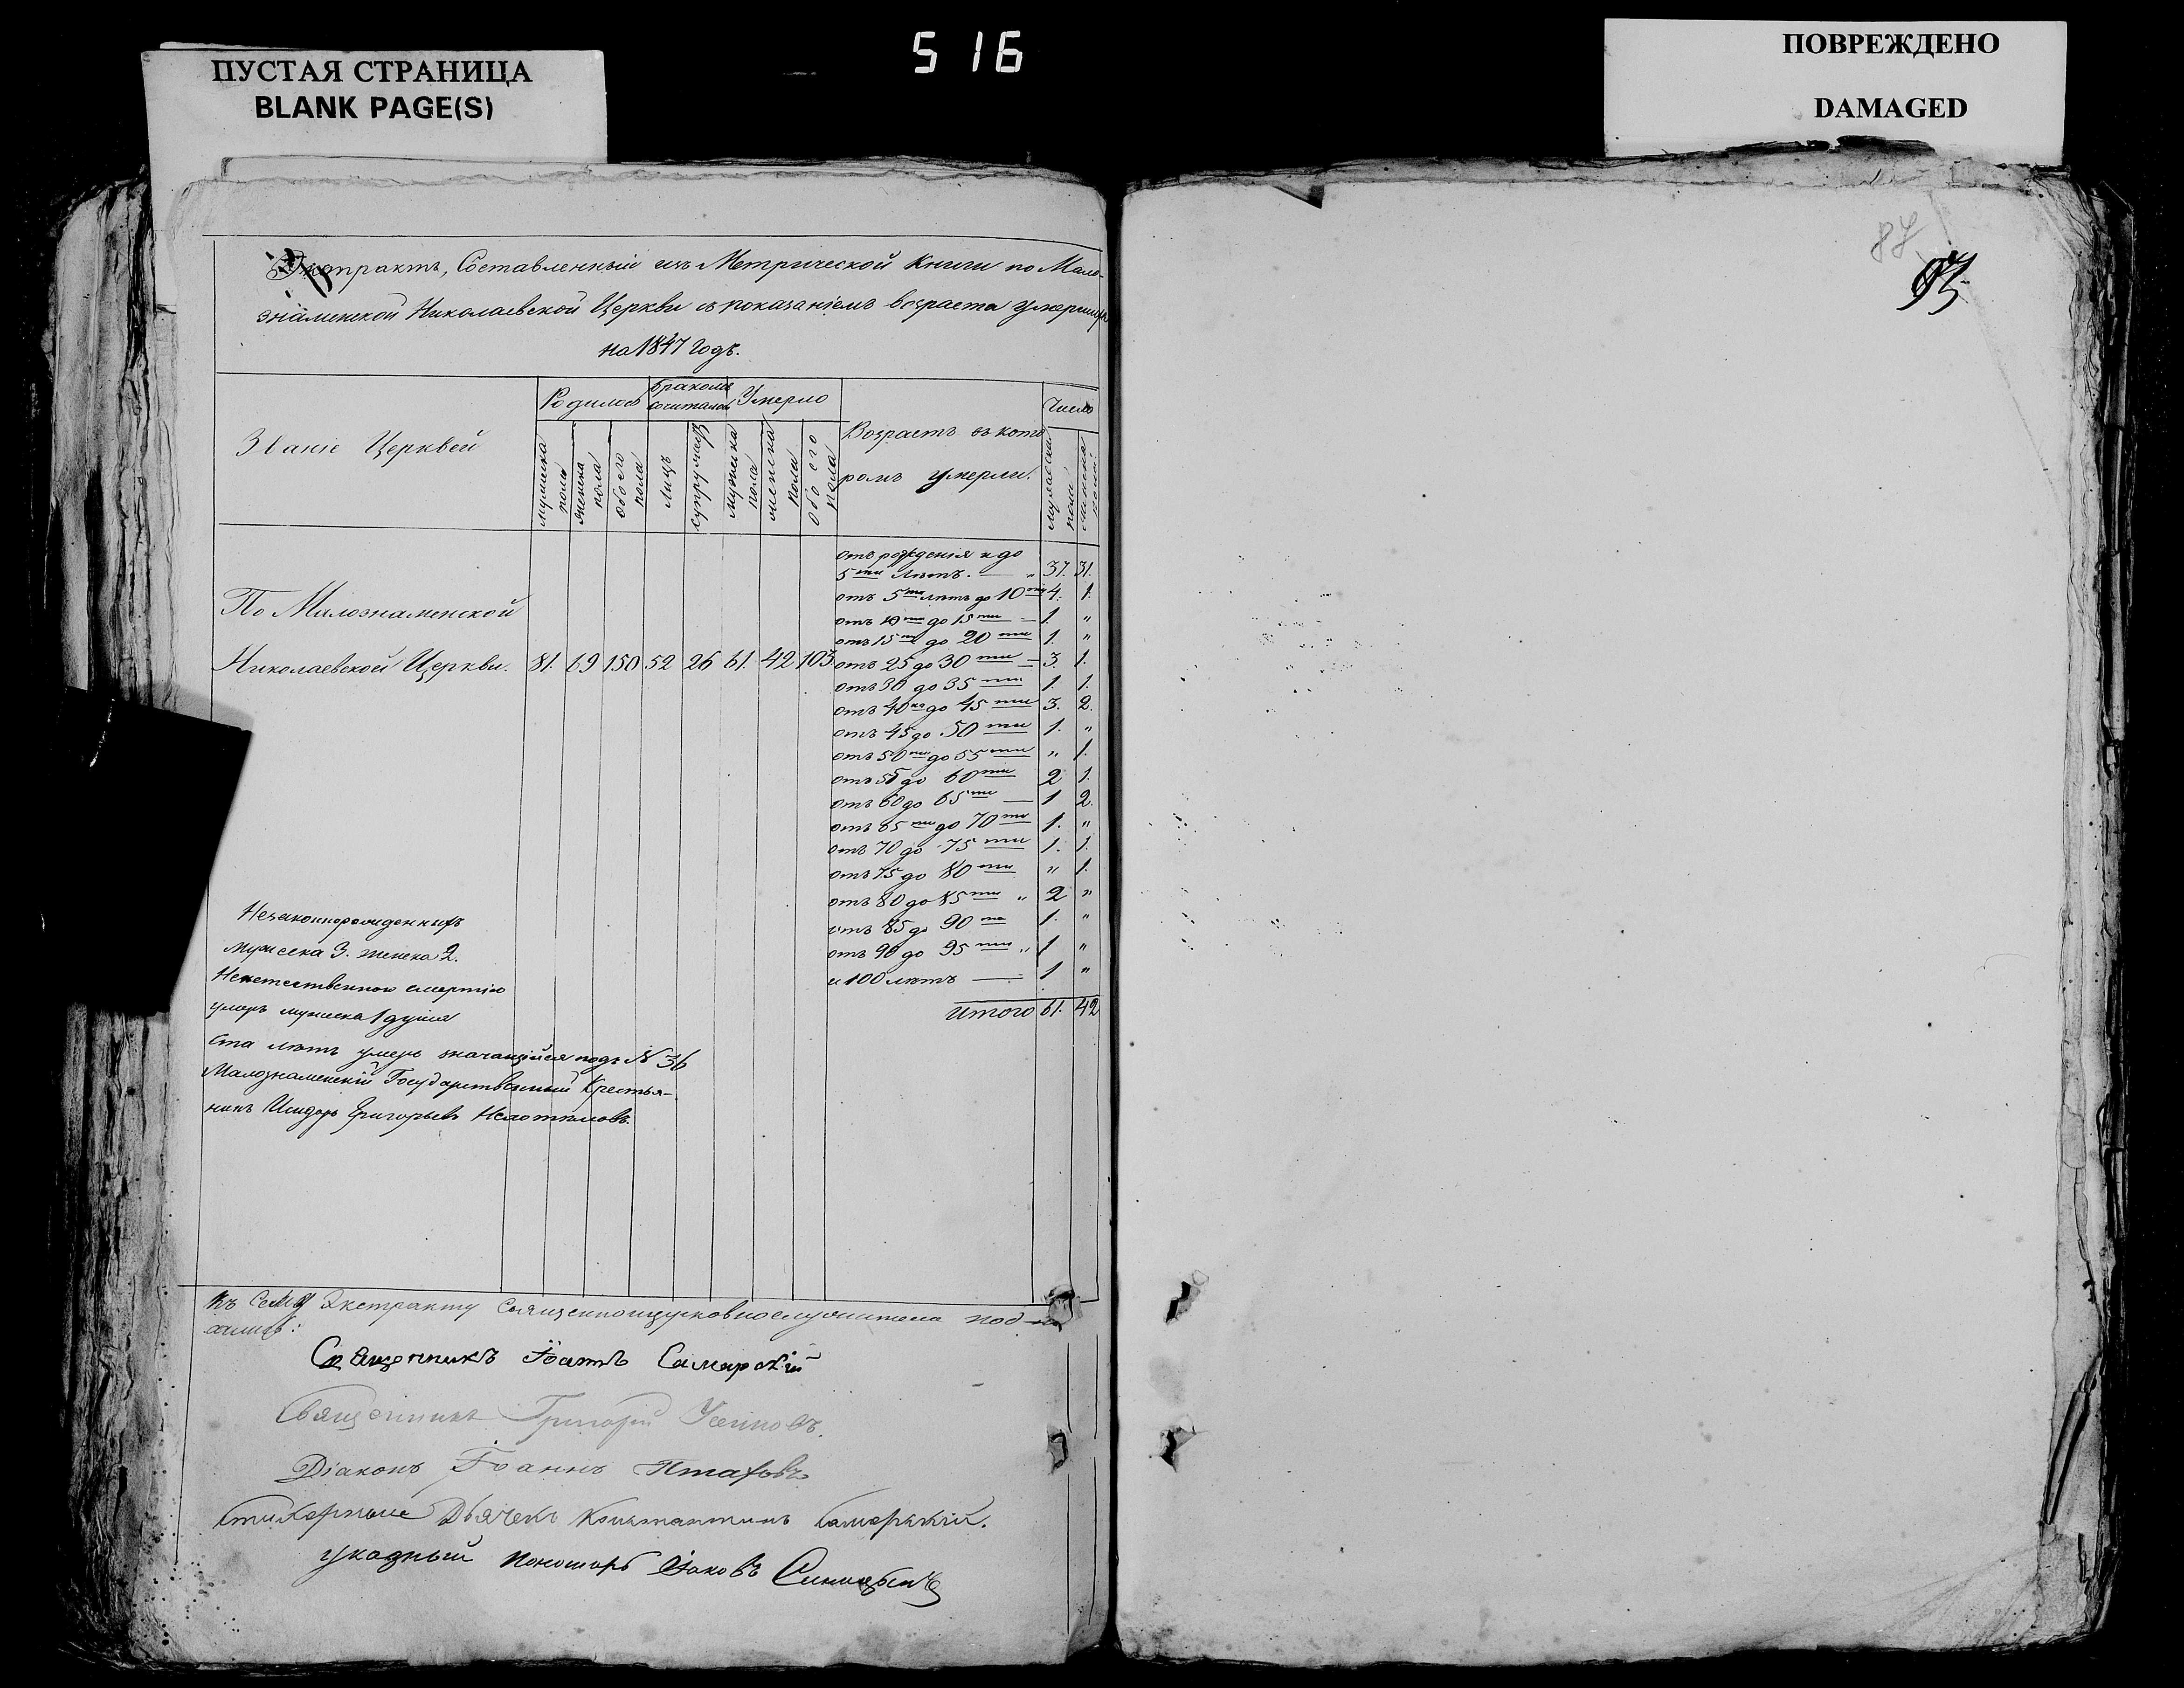 ПУСТАЯ СТРАНИЦА
BLANK PAGE(S)
516
ПОВРЕЖДЕНО
DAMAGED
87
Экстрактъ, Составленный изъ Метрической Книги по Мало-
знаменской Николаевской Церкви съ показаніемъ возраста умершихъ
на 1847 годъ.
Званіе Церквей
Родилось
Бракомъ сочиталось
Умерло
Возрастъ въ кото
ромъ умерли.
Число
мужеска пола
женска пола
обоего пола
лицъ
супружествъ
мужеска пола
женска пола
обоего пола
мужеска пола
женска пола
По Малознаменской
Николаевской Церкви. 81. 69 150 52 26 61. 42 103
отъ рожденія и до
5ти лѣтъ. — „ 37. 31.
отъ 5ти лѣтъ до 10ти 4. 1.
отъ 10ти до 15ти — 1. „
отъ 15ти до 20ти 1. „
отъ 25 до 30ти — 3. 1.
отъ 30 до 35ти 1. 1.
отъ 40ка до 45ти 3. 2.
отъ 45 до 50ти 1. „
отъ 50ти до 55ти „ 1.
отъ 55 до 60ти 2 1.
отъ 60 до 65ти — 1 2.
отъ 65ти до 70ти 1. „
отъ 70 до 75ти 1. 1.
отъ 75 до 80ти „ 1.
отъ 80 до 85ти „ 2 „
отъ 85 до 90то 1. „
отъ 90 до 95ти „ 1 „
и 100 лѣтъ — 1 „
Итого 61. 42
Незаконнорожденныхъ
мужеска 3. женска 2.
Неестественною смертію
умеръ мужеска 1 душа
Ста лѣтъ умеръ значащійся подъ № 36
Малознаменскій Государственный Крестья-
нинъ Исидоръ Григорьевъ
Къ Сему Экстракту Священноицерковнослужители под
Священникъ Іоаннъ Самарскій
Священникъ Григорій
Діаконъ Іоаннъ
Стихарные Дьячекъ Константинъ Самарскій.
указный Пономарь Іаковъ Синицынъ